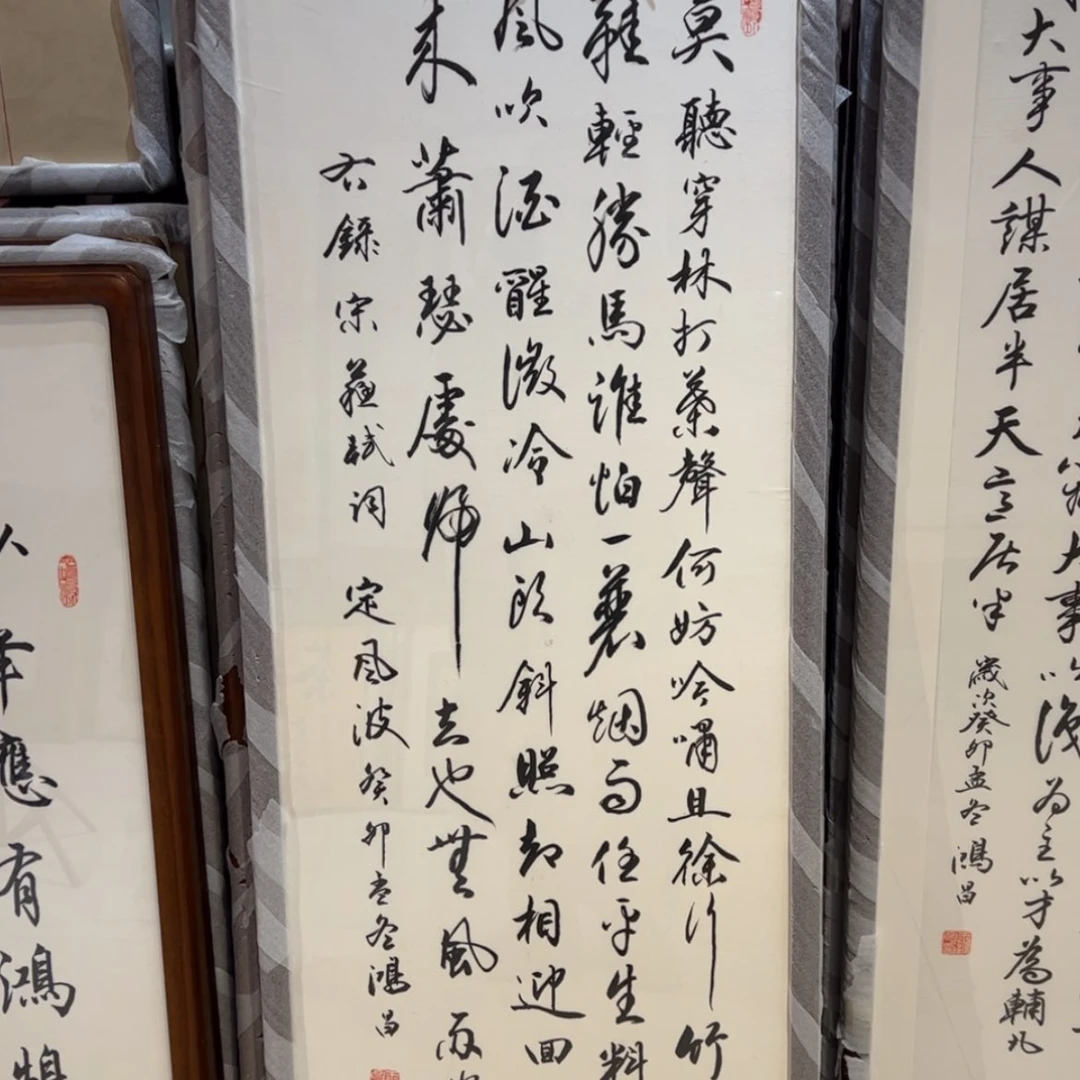 大事
为主以才為輔凡
大事人謀居半天意居半
歲次癸卯孟冬鴻昌
莫聽穿林打葉聲何妨吟嘯且徐行竹
鞋輕勝馬誰怕一蓑烟雨任平生料
風吹酒醒微冷山头斜照却相迎回
来蕭瑟處歸去也無風雨
右錄宋蘇軾詞 定風波癸卯孟冬鴻昌
應有鴻鵠